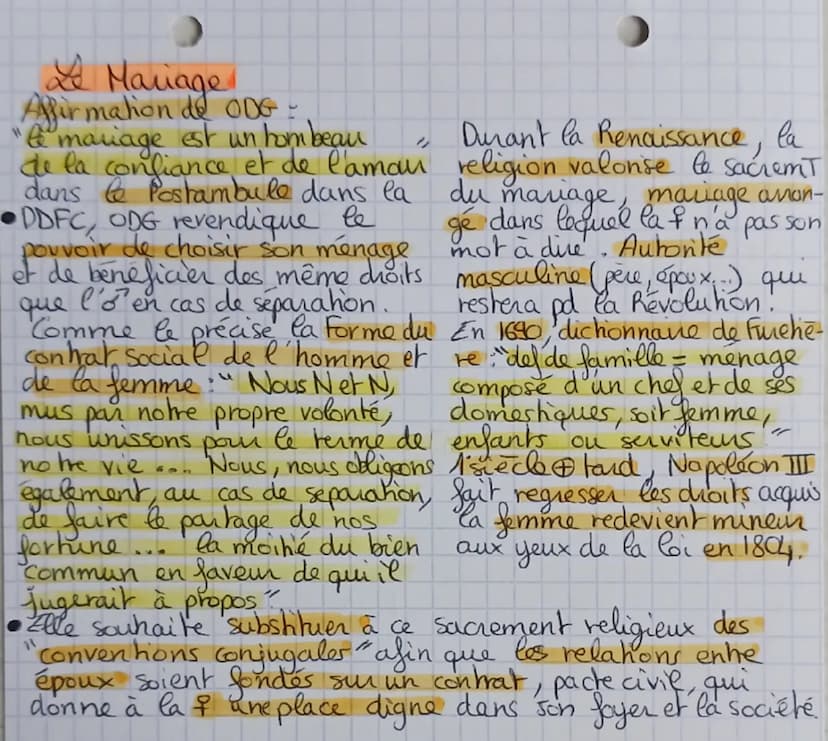 Le Mariage
Affirmation de ODG :
"Le mariage est un tombeau
de la confiance et de l'amour"
dans le Postambule dans la
• DDFC, ODG revendique le
pouvoir de choisir son ménage
et de bénéficier des même droits
que l'♂ en cas de séparation.
Comme le précise la Forme du
contrat social de l'homme et
de la femme : "Nous N et N,
mus par notre propre volonté,
nous unissons pour le terme de
notre vie .... Nous, nous obligeons
également, au cas de separation,
de faire le partage de nos
fortune ... la moitié du bien
commun en faveur de qui il
jugerait à propos"
Durant la Renaissance, la
religion valorise le sacremT
du mariage, mariage arran-
gé dans lequel la ♀ n'a pas son
mot à dire. Autorité
masculine (père, époux...) qui
restera pd la Révolution.
En 1690, dichonnaire de Furetiè-
re : "def de famille = ménage
composé d'un chef et de ses
domestiques, soit femme,
enfants ou serviteurs"
1 siècle ⊕ tard, Napoléon III
fait regresser les droits acquis
la femme redevient mineur
aux yeux de la loi en 1804.
• Elle souhaite substituer à ce sacrement religieux des
"conventions conjugales" afin que les relations entre
époux soient fondés sur un contrat, pacte civil, qui
donne à la ♀ une place digne dans son foyer et la société.